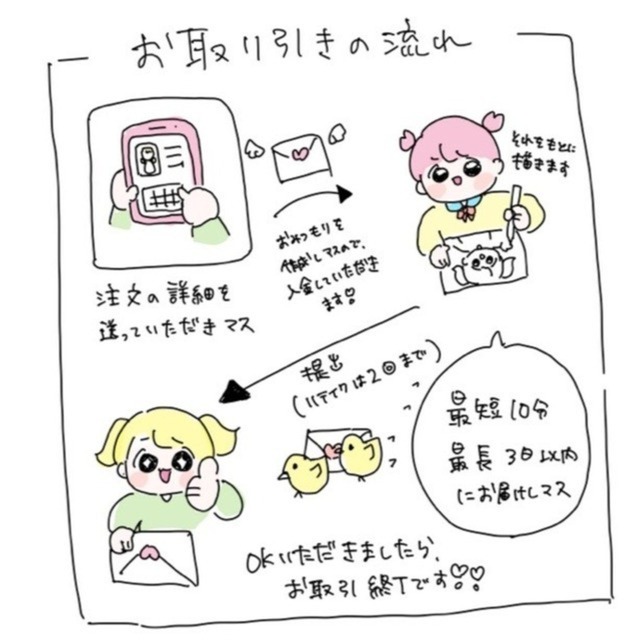 お取り引きの流れ
注文の詳細を
送っていただきマス
おみつもりを
作成しマスので、
入金していただき
ます!
それをもとに
描きます
提出
(リテイクは2回まで)
最短10分
最長3日以内
にお届けしマス
OKいただきましたら、
お取引終了です♡♡